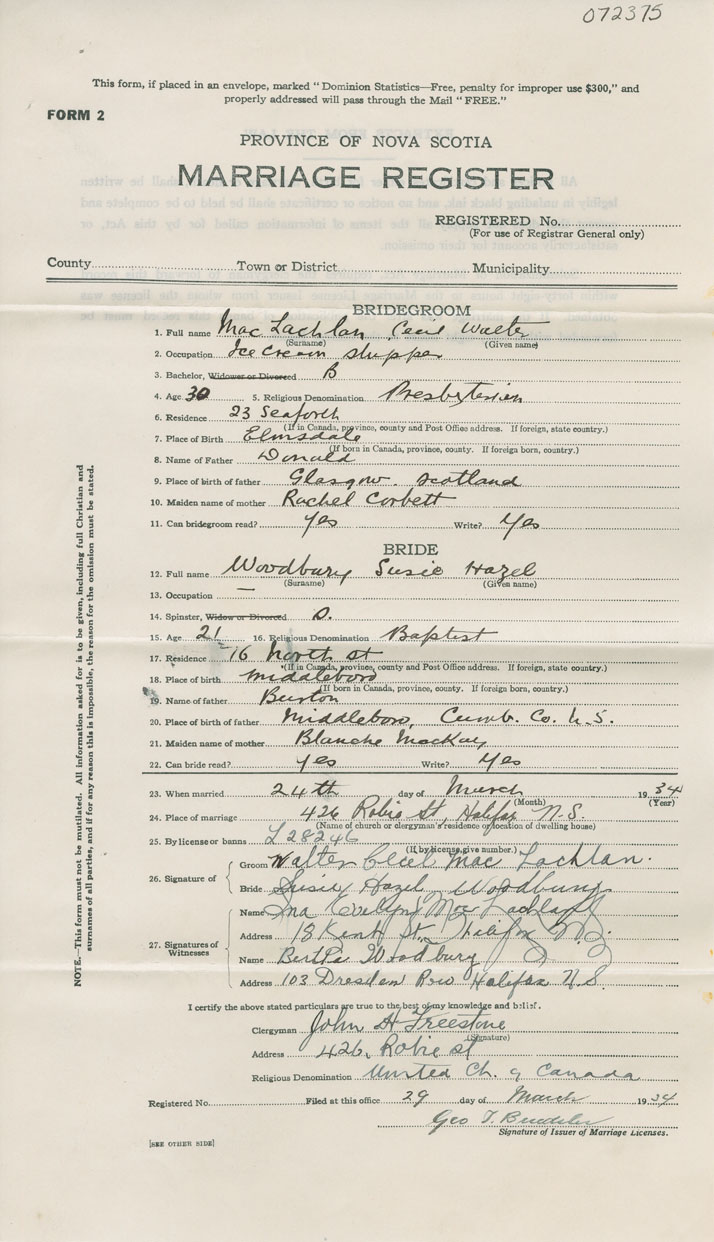 072375
This form, if placed in an envelope, marked "Dominion Statistics—Free, penalty for improper use $300," and
properly addressed will pass through the Mail "FREE."
FORM 2
PROVINCE OF NOVA SCOTIA
MARRIAGE REGISTER
REGISTERED No.
(For use of Registrar General only)
County Town or District Municipality
BRIDEGROOM
1. Full name Mac Lachlan Cecil Walter
(Surname) (Given name)
2. Occupation Ice Cream shipper
3. Bachelor, Widower or Divorced B
4. Age 30 5. Religious Denomination Presbyterian
6. Residence 23 Seaforth
(If in Canada, province, county and Post Office address. If foreign, state country.)
7. Place of Birth Elmsdale
(If born in Canada, province, county. If foreign born, country.)
8. Name of Father Donald
9. Place of birth of father Glasgow. Scotland
10. Maiden name of mother Rachel Corbett
11. Can bridegroom read? Yes Write? Yes
BRIDE
12. Full name Woodbury Susie Hazel
(Surname) (Given name)
13. Occupation —
14. Spinster, Widow or Divorced
15. Age 21 16. Religious Denomination Baptist
17. Residence 16 North st
(If in Canada, province, county and Post Office address. If foreign, state country.)
18. Place of birth Middleboro
(If born in Canada, province, county. If foreign born, country.)
19. Name of father Burton
20. Place of birth of father Middleboro, Cumb. Co. N.S.
21. Maiden name of mother Blanche MacKay
22. Can bride read? Yes Write? Yes
23. When married 24th day of March 1934
(Month) (Year)
24. Place of marriage 426 Robie St, Halifax N.S.
(Name of church or clergyman's residence or location of dwelling house)
25. By license or banns L 28246
(If by license, give number.)
26. Signature of Groom Walter Cecil Mac Lachlan.
Bride Susie Hazel Woodbury
27. Signatures of Witnesses Name Ina Evelyn Mac Lachlan
Address 18 Kent St. Halifax N.S.
Name Woodbury
Address 103 Dresden Row Halifax N.S.
I certify the above stated particulars are true to the best of my knowledge and belief.
Clergyman John H Freestone
(Signature)
Address 426, Robie st
Religious Denomination United Ch. of Canada
Registered No. Filed at this office 29 day of March 1934
Geo T.
Signature of Issuer of Marriage Licenses.
[SEE OTHER SIDE]
NOTE.—This form must not be mutilated. All information asked for is to be given, including full Christian and
surnames of all parties, and if for any reason this is impossible, the reason for the omission must be stated.